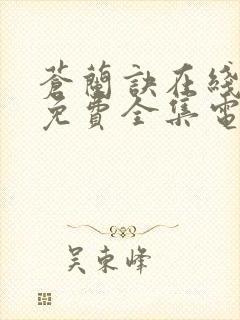 蒼蘭訣在綫
免費全集電
吴東峰